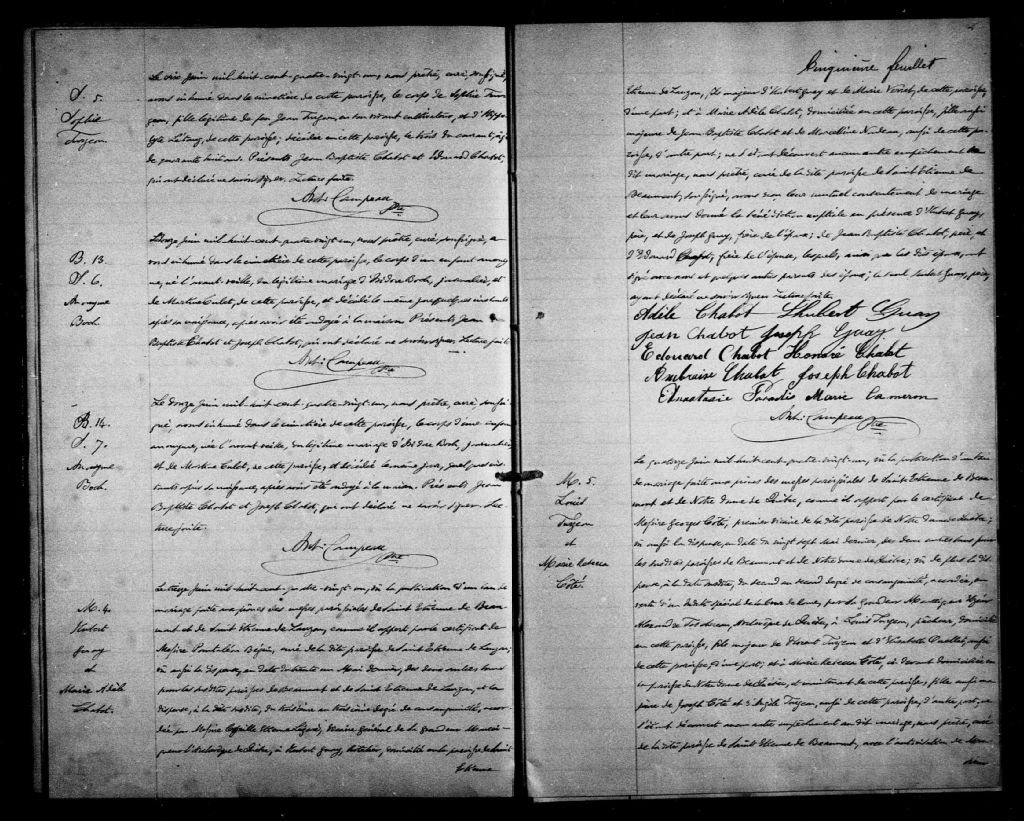 S. 5.
Sophie
Turgeon
Le six Juin mil huit-cent-quatre-vingt-un, nous prêtre, curé, soussigné,
avons inhumé dans le cimetière de cette paroisse, le corps de Sophie Tur-
geon, fille légitime de feu Jean Turgeon, en son vivant cultivateur, et d'
de cette paroisse, décédée en cette paroisse, le trois du courant, âgée
de quarante huit ans. Présents Jean Baptiste Chabot et Edouard Chabot,
qui ont déclaré ne savoir signer. Lecture faite.
Ant. Campeau Ptre
B. 13.
S. 6.
Anonyme
Boch.
Le douze Juin mil huit-cent quatre-vingt-un, nous prêtre, curé soussigné, a-
vons inhumé dans le cimetière de cette paroisse, le corps d'un enfant anony-
me, né l'avant-veille, du légitime mariage d'Isidore Boch, journalier, et
de Martine Culet, de cette paroisse, et décédé le même jour, quelques instants
après sa naissance, après avoir été ondoyé à la maison. Présents Jean
Baptiste Chabot et Joseph Chabot, qui ont déclaré ne savoir signer. Lecture faite
Ant. Campeau Ptre
B. 14.
S. 7.
Anonyme
Boch.
Le douze Juin mil huit-cent-quatre-vingt-un, nous prêtre, curé, soussi-
gné, avons inhumé dans le cimetière de cette paroisse, le corps d'une enfant
anonyme, née l'avant veille, du légitime mariage d'Isidore Boch, journalier
et de Martine Culet, de cette paroisse, et décédée le même jour, quelques ins-
tants après sa naissance, après avoir été ondoyée à la maison. Présents Jean
Baptiste Chabot et Joseph Chabot, qui ont déclaré ne savoir signer. Lec-
ture faite.
Ant. Campeau Ptre
M. 4.
Hubert
Guay
et
Marie Adèle
Chabot.
Le treize Juin mil huit-cent-quatre-vingt-un, vu la publication d'un ban de
mariage faite aux prônes des messes paroissiales de Saint Etienne de Beau-
mont et de Saint Etienne de Lauzon, comme il appert par le certificat de
Messire Pantaléon Bégin, curé de la dite paroisse de Saint Etienne de Lauzon;
vu aussi la dispense, en date du trente un Mai dernier, des deux autres bans
pour les susdites paroisses de Beaumont et de Saint Etienne de Lauzon, et la
dispense, à la date susdite, du troisième au troisième degré de consanguinité, accor-
dée par Messire Cyrille Etienne Légaré, Vicaire Général de Sa Grandeur Monsei-
gneur l'Archevêque de Québec, à Hubert Guay, domicilié en la paroisse de Saint
Etienne
Cinquième feuillet
Etienne de Lauzon, fils majeur d'Hubert Guay et de Marie de cette paroisse,
d'une part; et à Marie Adèle Chabot, domiciliée en cette paroisse, fille aussi
majeure de Jean Baptiste Chabot et de Marcelline Nadeau, aussi de cette pa-
roisse, d'autre part; ne s'étant découvert aucun autre empêchement au
dit mariage, nous prêtre, curé de la dite paroisse de Saint Etienne de
Beaumont, soussigné, avons reçu leur mutuel consentement de mariage
et leur avons donné la bénédiction nuptiale en présence d'Hubert Guay,
père, et de Joseph Guay, frère de l'époux; de Jean Baptiste Chabot, père, et
d'Edouard Chabot, frère de l'épouse, lesquels, ainsi que les dits époux, ont
signé avec nous et quelques autres parents des époux; le seul Hubert Guay, père,
ayant déclaré ne savoir signer. Lecture faite.
Adèle Chabot Hubert Guay
Jean Chabot Joseph Guay
Edouard Chabot Honoré Chabot
Ambroise Chabot Joseph Chabot
Anastasie Paradis Marie Cameron
Ant. Campeau Ptre
M. 5.
Louis
Turgeon
et
Marie Rebecca
Côté.
Le quatorze Juin mil huit-cent-quatre-vingt-un, vu la publication d'un ban
de mariage faite aux prônes des messes paroissiales de Saint Etienne de Beau-
mont et de Notre Dame de Québec, comme il appert par le certificat de
Messire Georges Côté, premier vicaire de la dite paroisse de Notre Dame de Québec;
vu aussi la dispense, en date du vingt sept Mai dernier, des deux autres bans pour
les susdites paroisses de Beaumont et de Notre Dame de Québec; vu de plus la dis-
pense, à la date susdite, du second au second degré de consanguinité, accordée, en
vertu d'un Indult spécial de la Cour de Rome, par Sa Grandeur Monseigneur Elzéar
Alexandre Taschereau, Archevêque de Québec, à Louis Turgeon, domicilié
en cette paroisse, fils majeur de Turgeon et d' Ouellet, aussi
de cette paroisse, d'une part; et à Marie Rebecca Côté, ci devant domiciliée en
la paroisse de Notre Dame de Québec, et maintenant de cette paroisse; fille aussi ma-
jeure de Joseph Côté et d'Adèle Turgeon, aussi de cette paroisse, d'autre part; ne
s'étant découvert aucun autre empêchement au dit mariage, nous prêtre, curé
de la dite paroisse de Saint Etienne de Beaumont, avec l'autorisation de